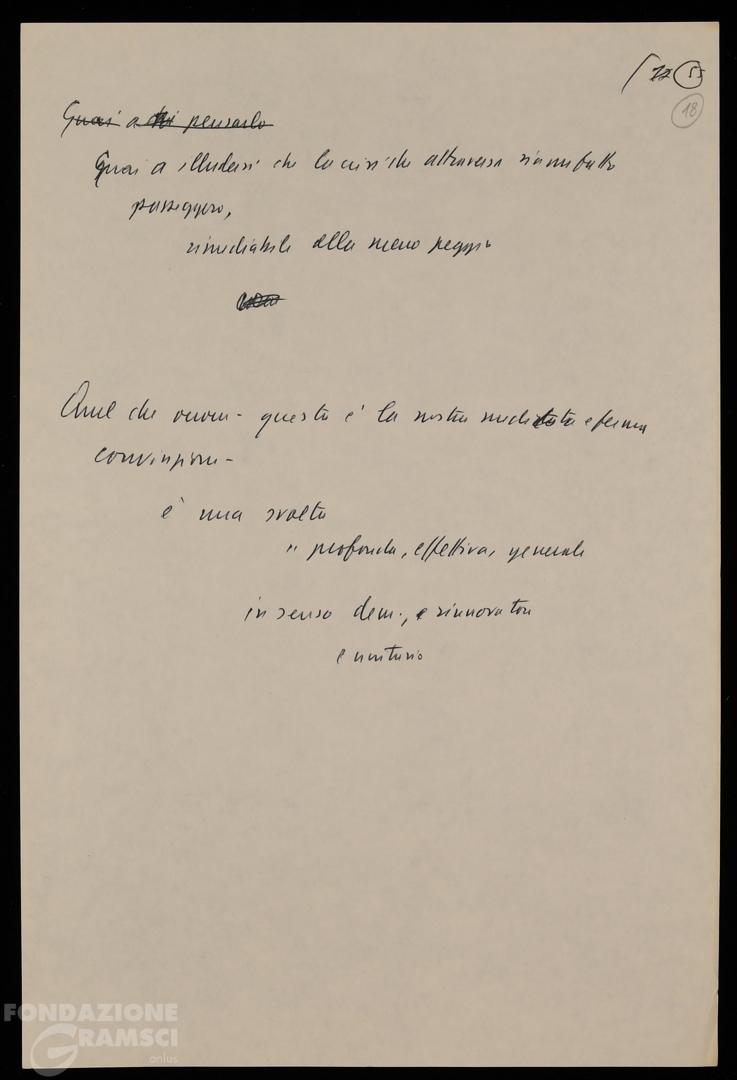 12 55
18
Guai a chi pensarlo
Guai a illudersi che la crisi che attraversa sia un fatto
passeggero,
rimediabile alla meno peggio
Quel che occorre - questa è la nostra meditata e ferma
convinzione -
è una svolta
" profonda, effettiva, generale
in senso dem., e rinnovatore
e unitario
FONDAZIONE
GRAMSCI
onlus